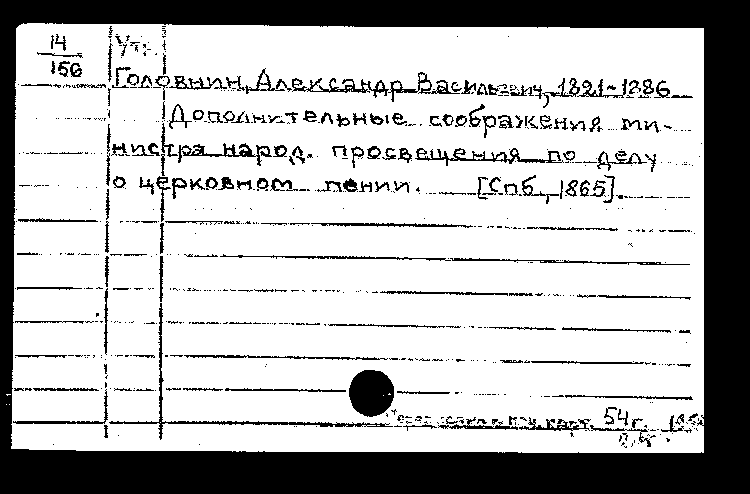 14
156
Утр.
Головнин, Александр Васильевич, 1821-1886
Дополнительные соображения ми-
нистра народ. просвещения по делу
о церковном пении. [Спб., 1865].
карт. 54 г.